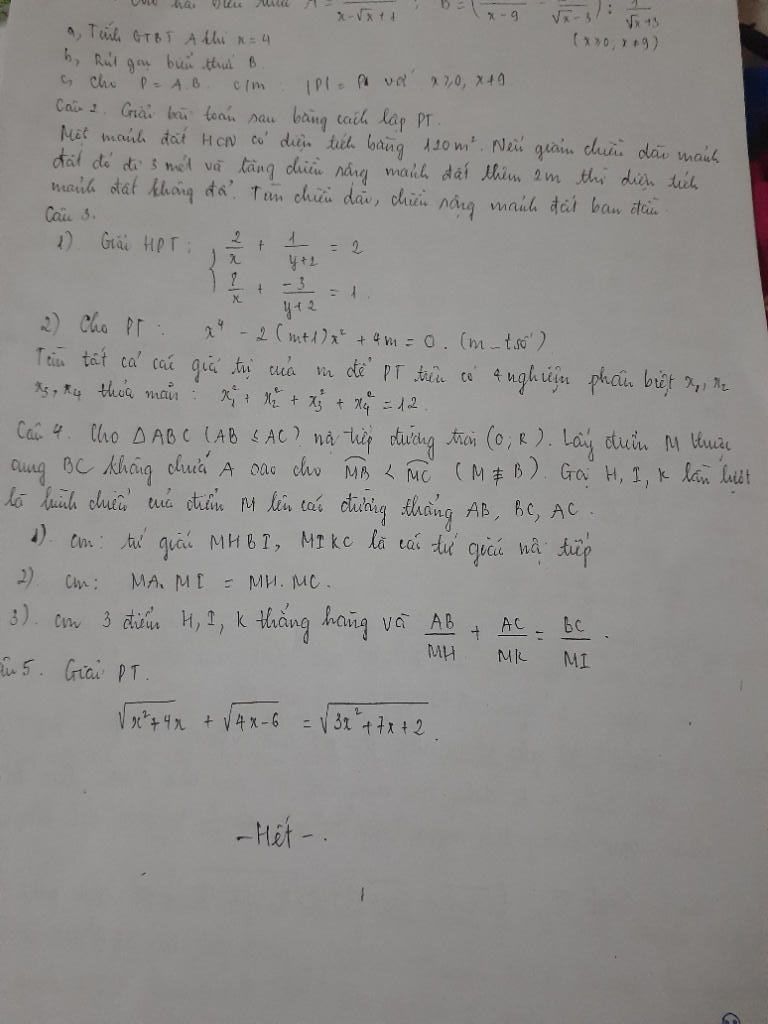 x-√x+1 ; B = ( x-9 - √x-3 ) : 1/√x+3
a, Tính GTBT A khi x=4 (x≥0, x≠9)
b, Rút gọn biểu thức B.
c, Cho P = A.B. c/m: |P| = P với x≥0, x≠9.
Câu 2. Giải bài toán sau bằng cách lập PT.
Một mảnh đất HCN có diện tích bằng 120m². Nếu giảm chiều dài mảnh
đất đó đi 3 mét và tăng chiều rộng mảnh đất thêm 2m thì diện tích
mảnh đất không đổi. Tìm chiều dài, chiều rộng mảnh đất ban đầu.
Câu 3.
1) Giải HPT: { 2/x + 1/y+2 = 2
8/x + -3/y+2 = 1.
2) Cho PT: x⁴ - 2(m+1)x² + 4m = 0. (m-t.số)
Tìm tất cả các giá trị của m để PT trên có 4 nghiệm phân biệt x₁, x₂
x₃, x₄ thỏa mãn: x₁² + x₂² + x₃² + x₄² = 12.
Câu 4. Cho ΔABC (AB ≤ AC) nội tiếp đường tròn (O; R). Lấy điểm M thuộc
cung BC không chứa A sao cho MB < MC (M ≢ B). Gọi H, I, K lần lượt
là hình chiếu của điểm M lên các đường thẳng AB, BC, AC.
1). cm: tứ giác MHBI, MIKC là các tứ giác nội tiếp
2). cm: MA.MI = MH.MC.
3). cm 3 điểm H, I, K thẳng hàng và AB/MH + AC/MK = BC/MI.
5. Giải PT.
√x²+4x + √4x-6 = √3x²+7x+2.
- Hết -.